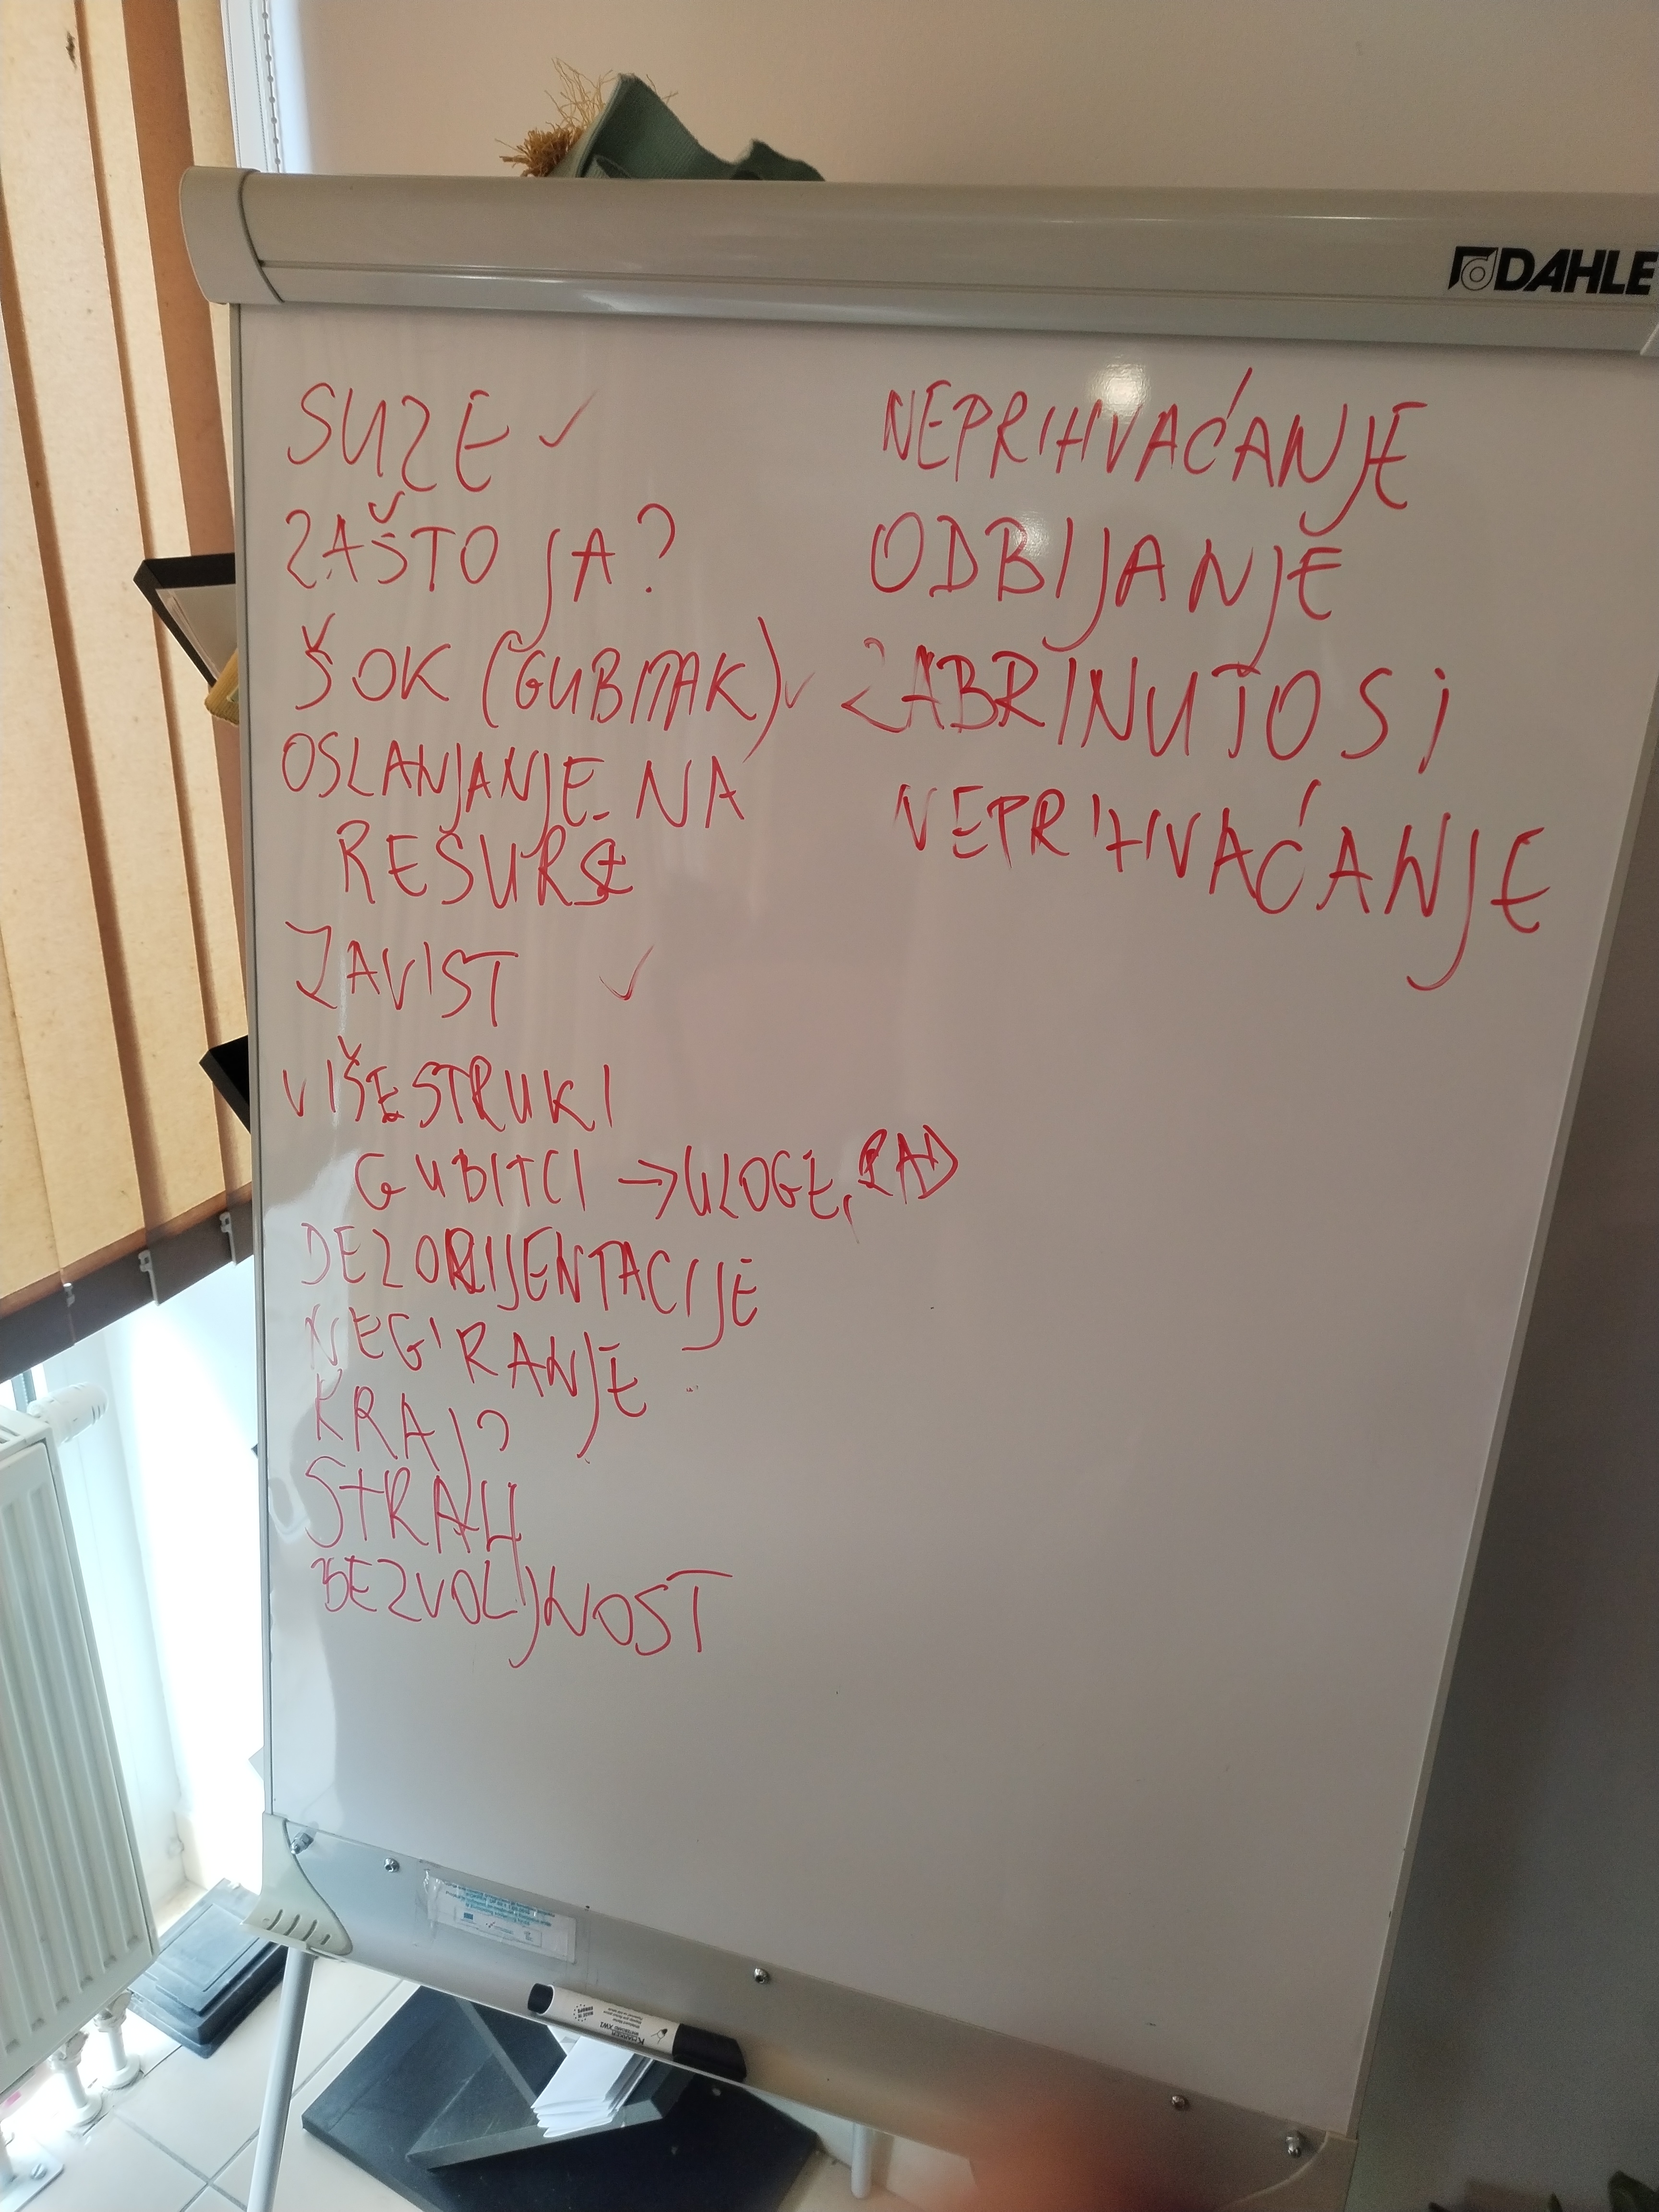 DAHLE
SUZE ✓
ZAŠTO JA?
ŠOK (GUBITAK) ✓
OSLANJANJE NA
RESURSE
ZAVIST ✓
VIŠESTRUKI
GUBITCI → ULOGE, RAD
DEZORIJENTACIJE
NEGIRANJE
KRAJ?
STRAH
BEZVOLJNOST
NEPRIHVAĆANJE
ODBIJANJE
ZABRINUTOSI
NEPRIHVAĆANJE